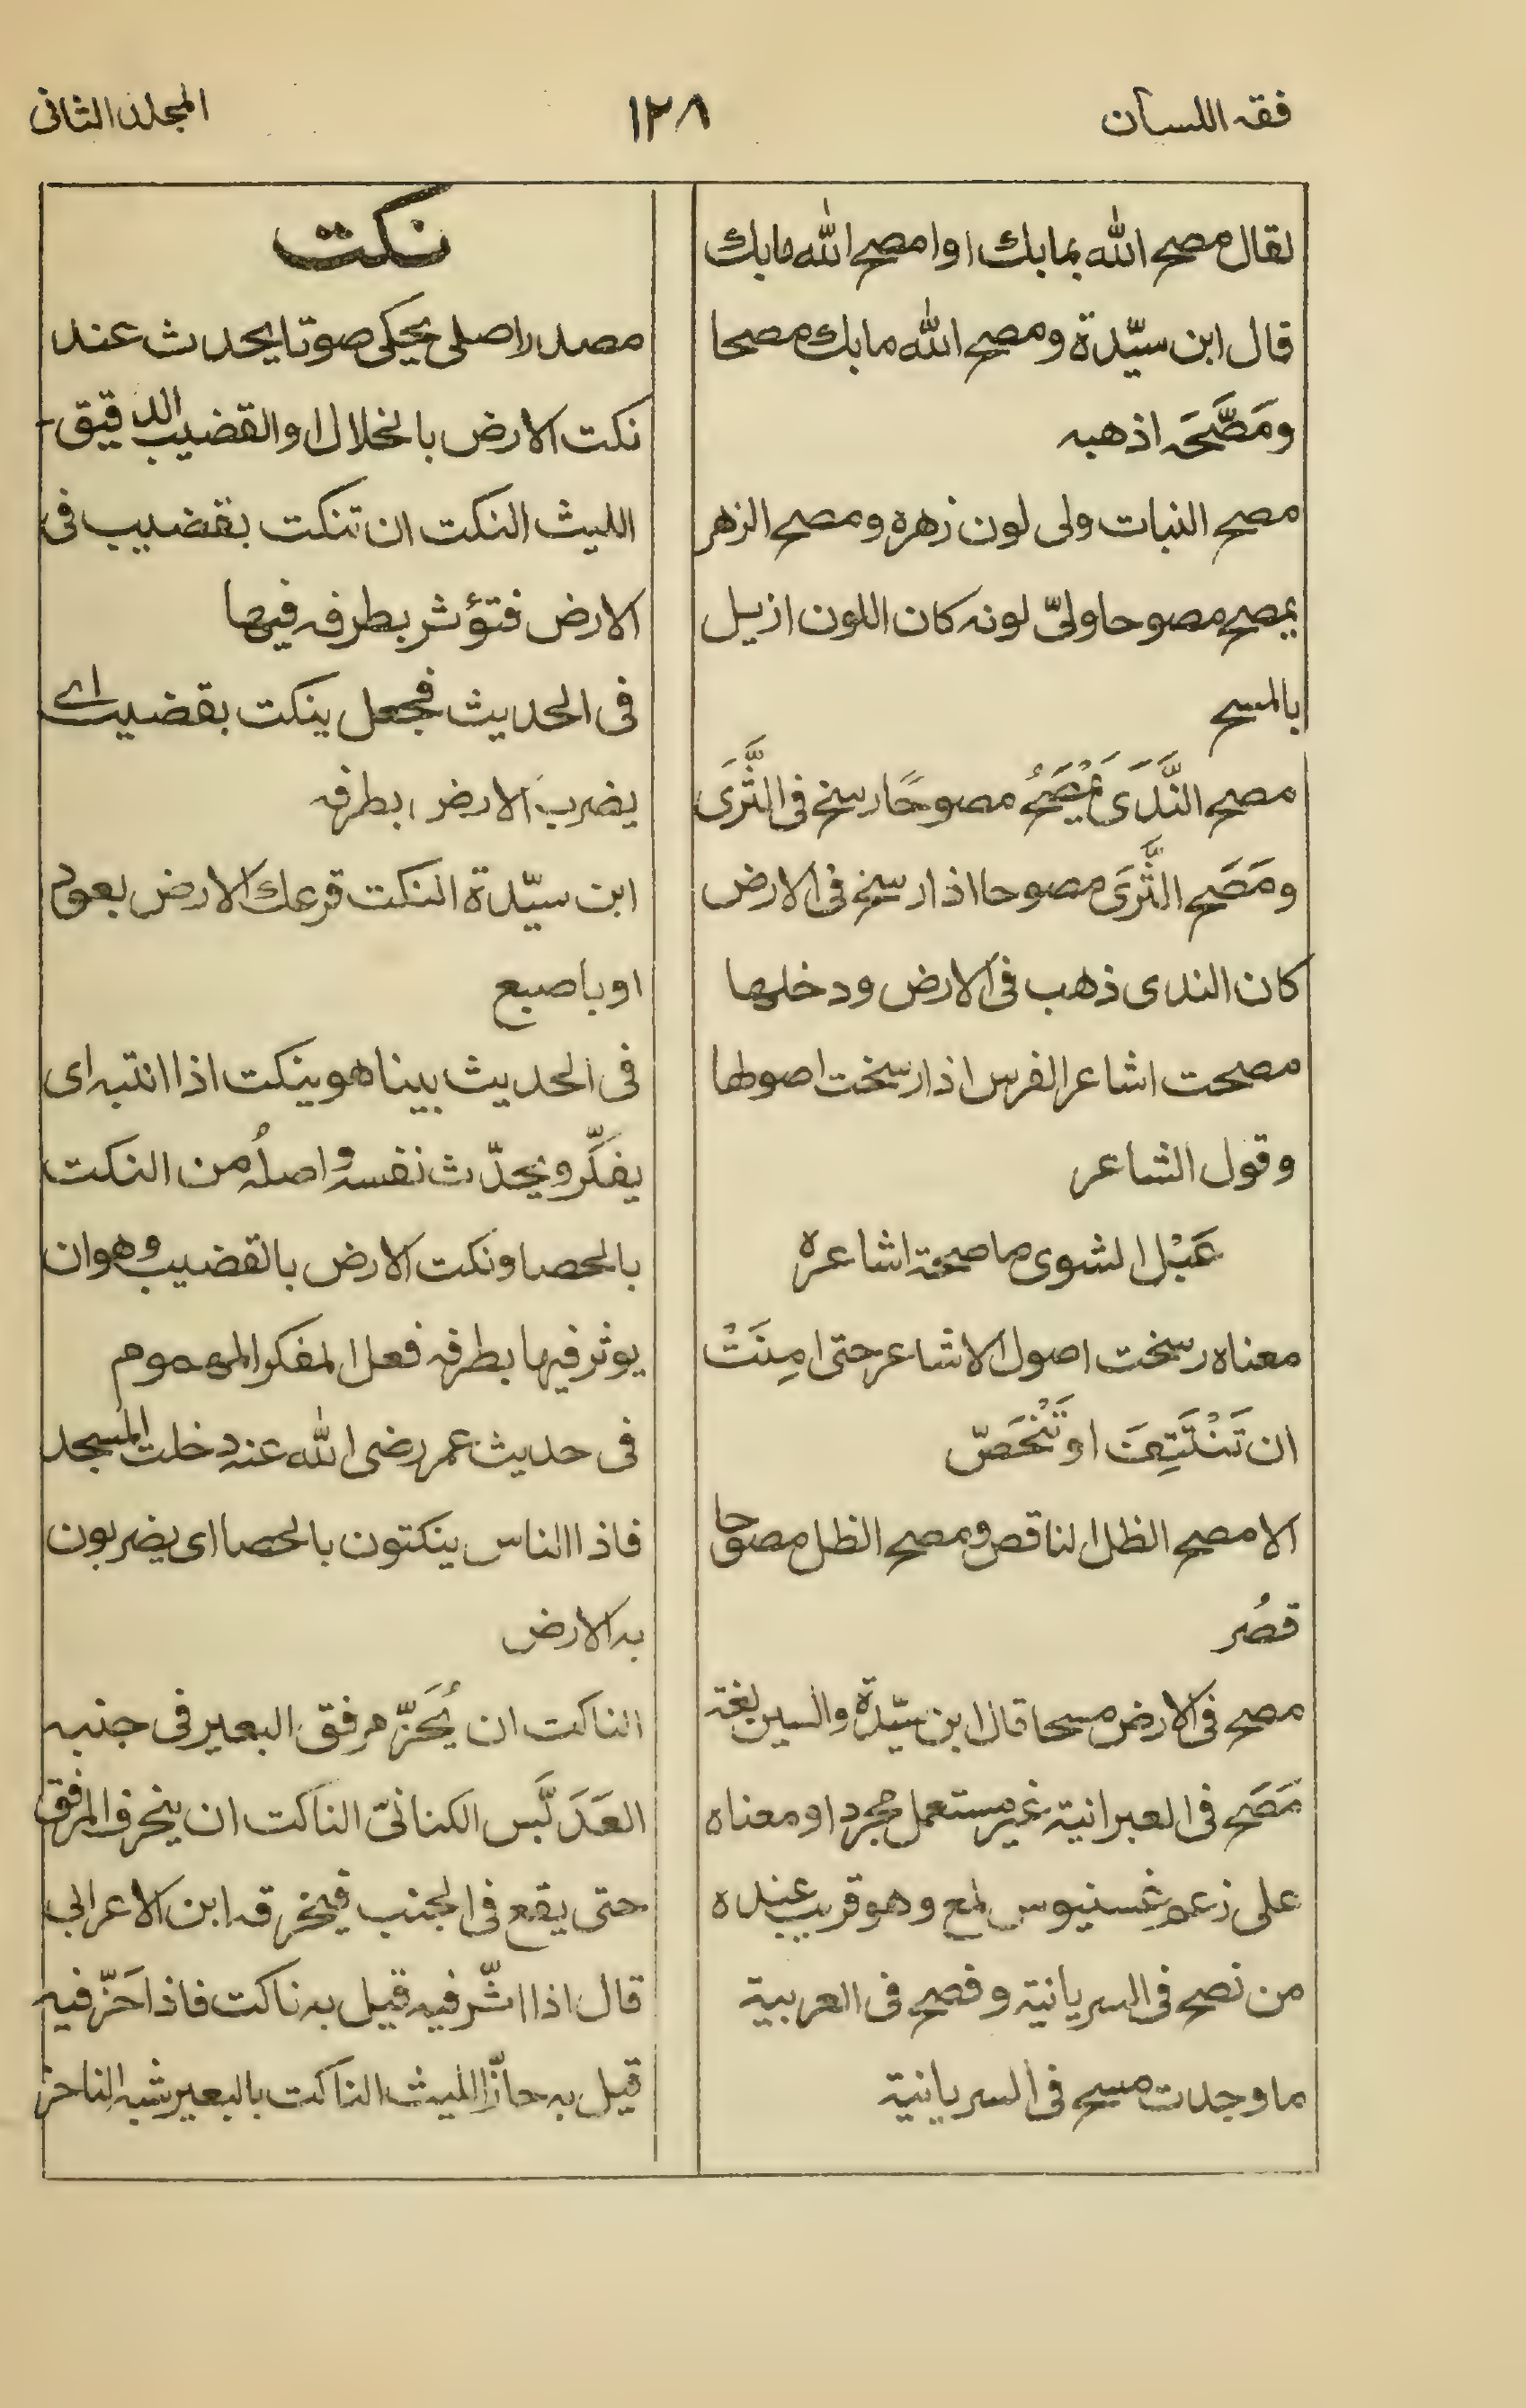 فقه اللسان
١٢٨
المجلد الثانى
يقال مصح الله بما بك او امصح الله ما بك
قال ابن سيّدة ومصح الله ما بك مصحا
ومَصَّحَه اذهبه
مصح النبات ولى لون زهره ومصح الزهر
يمصح مصوحا ولىّ لونه كان اللون ازيل
بالمسح
مصح النَّدَى يَمْصَحُ مصوحًا رسخ فى الثَّرَى
ومَصَح الثَّرَى مصوحا اذا رسخ فى الارض
كان الندى ذهب فى الارض ودخلها
مصحت اشاعر الفرس اذا رسخت اصولها
وقول الشاعر
عَبْل الشوى ماصحة اشاعره
معناه رسخت اصول الاشاعر حتى امِنَتْ
ان تَنْتَتِفَ او تَنْحَصّ
الامصح الظل الناقص ومصح الظل مصوحا
قصُر
مصح فى الارض مسحا قال ابن سيّدة والسين لغة
مَصَح فى العبرانية غير مستعمل مجردا ومعناه
على زعم غسنيوس لمع وهو قريب عنده
من نصح فى السريانية وفصح فى العربية
ما وجدت مسح فى السريانية
نكت
مصدر اصلى يحكى صوتا يحدث عند
نكت الارض بالخلال او القضيب الدقيق-
الليث النكت ان تنكت بقضيب فى
الارض فتؤثر بطرفه فيها
فى الحديث فجعل ينكت بقضيب اى
يضرب الارض بطرفه
ابن سيّدة النكت قرعك الارض بعود
او باصبع
فى الحديث بينا هو ينكت اذا انتبه اى
يفكّر ويحدّث نفسه واصلُه من النكت
بالحصا ونكت الارض بالقضيب وهو ان
يوثر فيها بطرفه فعل المفكر المهموم
فى حديث عمر رضى الله عنه دخلت المسجد
فاذا الناس ينكتون بالحصا اى يضربون
به الارض
الناكت ان يُحَزّ مرفق البعير فى جنبه
العَدَبَّس الكنانىّ الناكت ان ينحرف المرفق
حتى يقع فى الجنب فيخرقه ابن الاعرابى
قال اذا اثّر فيه قيل به ناكت فاذا حَزّ فيه
قيل به حازّ الليث الناكت بالبعير شبه الناحز